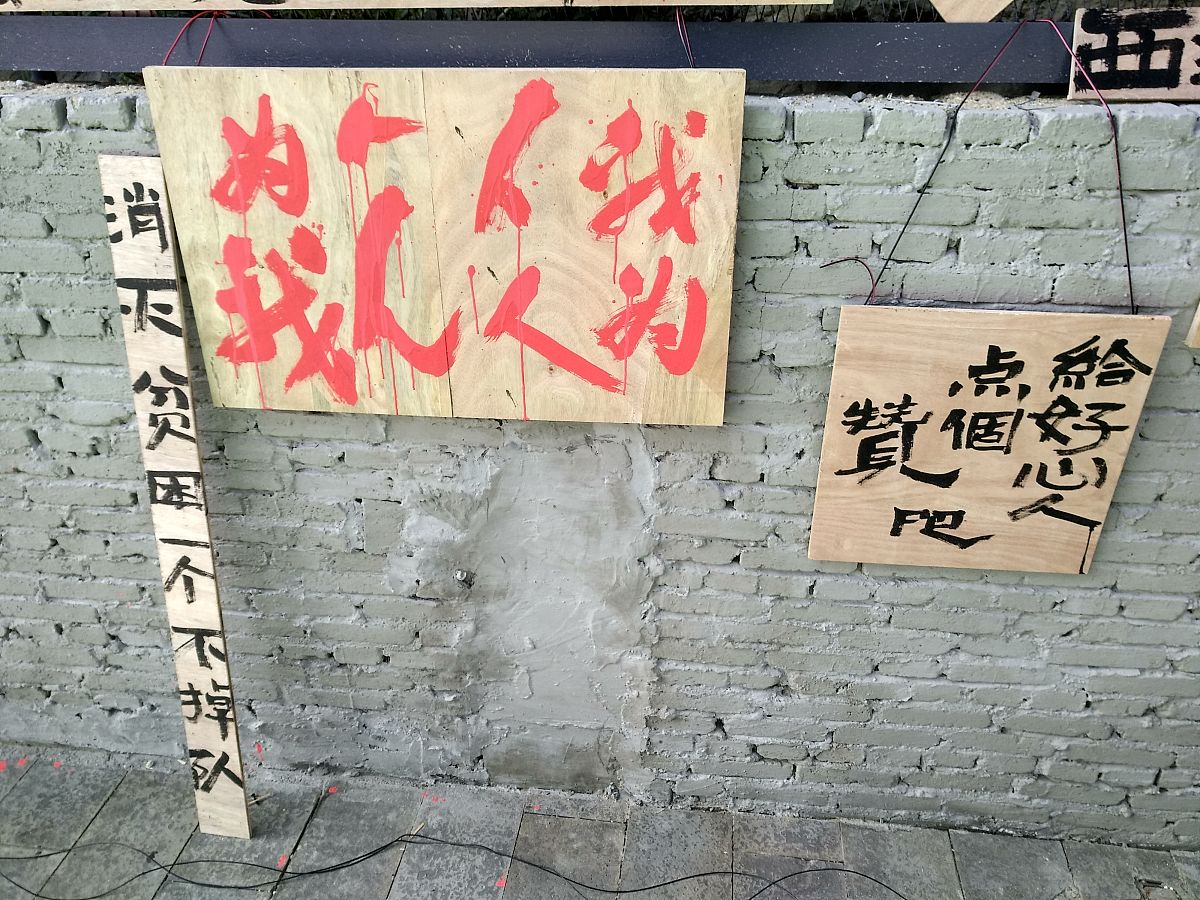 消灭贫困一个不掉队
我为
人人
人人
为我
給好心人
点個
賛
吧
西